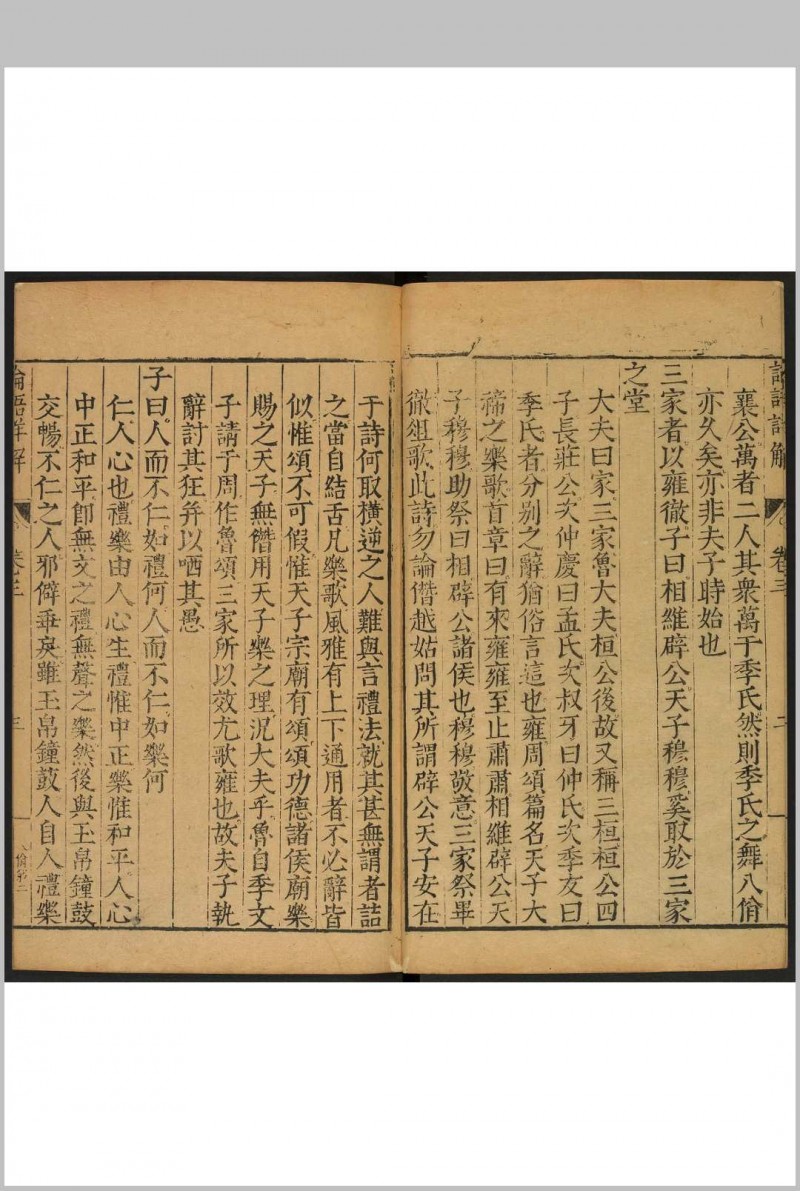 論語詳解 卷三 二
襄公萬者二人其衆萬于季氏然則季氏之舞八佾
亦久矣亦非夫子時始也
三家者以雍徹子曰相維辟公天子穆穆奚取於三家
之堂
大夫曰家三家魯大夫桓公後故又稱三桓桓公四
子長莊公次仲慶曰孟氏次叔牙曰仲氏次季友曰
季氏者分别之辭猶俗言這也雍周頌篇名天子大
禘之樂歌首章曰有來雍雍至止肅肅相維辟公天
子穆穆助祭曰相辟公諸侯也穆穆敬意三家祭畢
徹俎歌此詩勿論僭越姑問其所謂辟公天子安在
于詩何取橫逆之人難與言禮法就其甚無謂者詰
之當自結舌凡樂歌風雅有上下通用者不必辭皆
似惟頌不可假惟天子宗廟有頌頌功德諸侯廟樂
賜之天子無僭用天子樂之理況大夫乎魯自季文
子請于周作魯頌三家所以效尤歌雍也故夫子執
辭討其狂并以哂其愚
子曰人而不仁如禮何人而不仁如樂何
仁人心也禮樂由人心生禮惟中正樂惟和平人心
中正和平卽無文之禮無聲之樂然後與玉帛鐘鼓
交暢不仁之人邪僻乖戾雖玉帛鐘鼓人自人禮樂
論語詳解 卷三 三 八佾第三